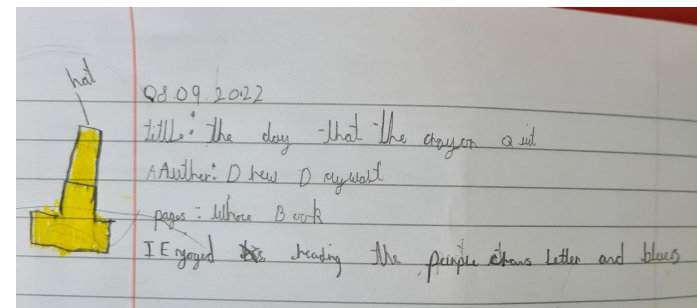 hat
08.09.2022
title: the day that the crayon Quit
Auther: Drew D
pages: Whore Book
I Enjoyed reading the purple Letter and blues